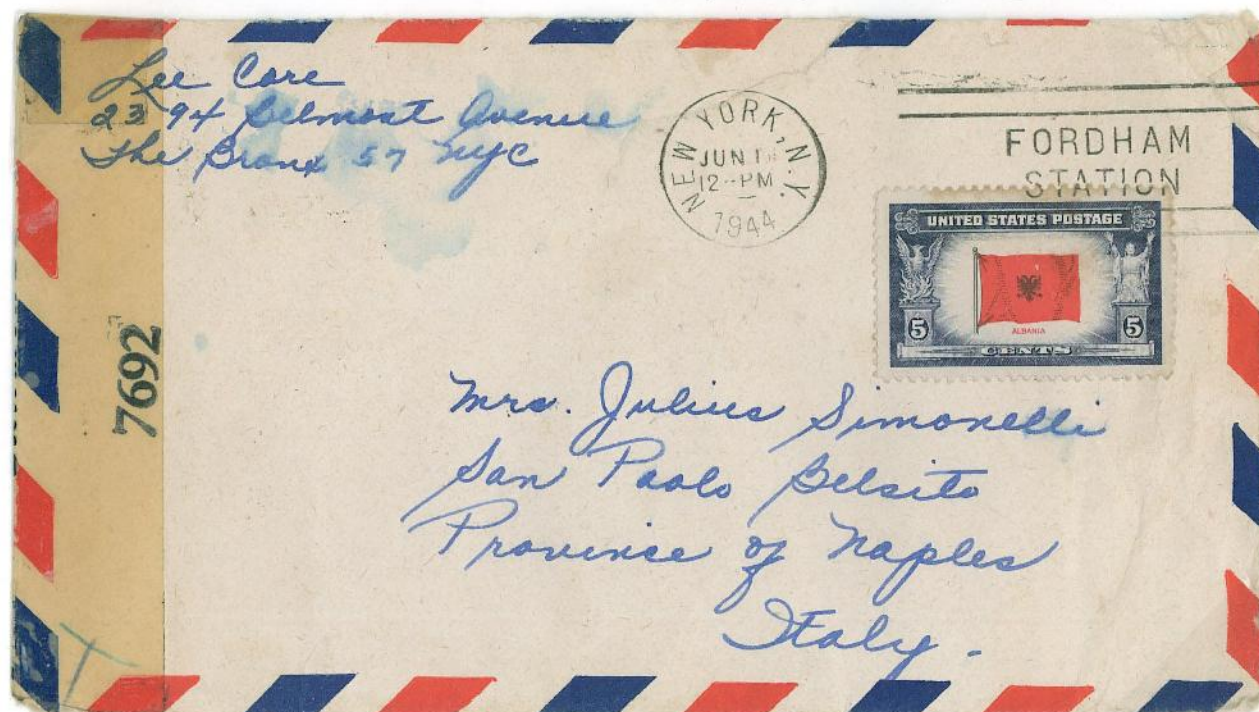 Lee Care
2394 Belmont Avenue
The Bronx 57 NYC
NEW YORK, N.Y.
JUN
12-PM
1944
FORDHAM
STATION
UNITED STATES POSTAGE
ALBANIA
5 5
CENTS
7692
Mrs. Julius Simonelli
San Paolo Belsito
Province of Naples
Italy.